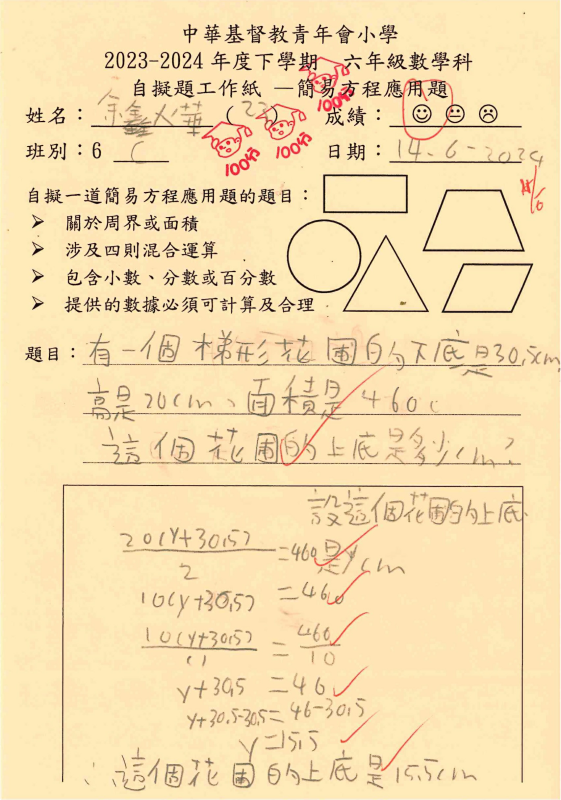 中華基督教青年會小學
2023-2024 年度下學期 六年級數學科
自擬題工作紙 —簡易方程應用題
姓名： 余鑫火華 ( 23 ) 成績：
100分
100分
100分
班別：6 C 日期：14-6-2024
自擬一道簡易方程應用題的題目：
➤ 關於周界或面積
➤ 涉及四則混合運算
➤ 包含小數、分數或百分數
➤ 提供的數據必須可計算及合理
題目：有一個梯形花圃的下底是30.5cm
高是20cm、面積是460
這個花圃的上底是多少cm？
設這個花圃的上底
20(y+30.5)/2 =460 是ycm
10(y+30.5) =460
10(y+30.5)/10 = 460/10
y+30.5 =46
y+30.5-30.5=46-30.5
y=15.5
∴這個花圃的上底是15.5cm